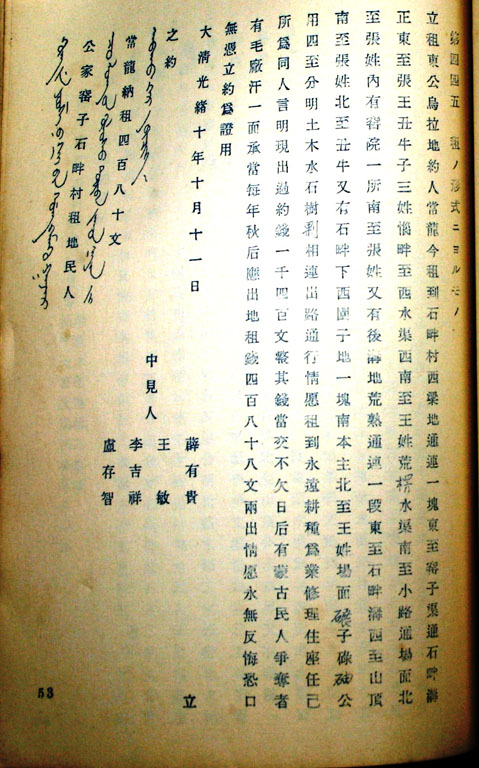 第四四五 租ノ形式ニヨルモノ
立租東公烏拉地約人常龍今租到石畔村西梁地通連一塊東至窑子渠通石畔溝
正東至張王丑牛子三姓墕畔至西水渠西南至王姓荒楞水渠南至小路通場面北
至張姓內有窑院一所南至張姓又有後溝地荒熟通連一段東至石畔溝西至山頂
南至張姓北至丑牛又有石畔下西園子地一塊南本主北至王姓場面碾子碌碡公
用四至分明土木水石樹利相連出路通行情愿租到永遠耕種爲業修理住座任己
所爲同人言明現出過約錢一千四百文整其錢當交不欠日后有蒙古民人爭奪者
有毛廠汗一面承當每年秋后應出地租錢四百八十八文兩出情愿永無反悔恐口
無憑立約爲證用
大清光緒十年十月十一日 立
中見人 薛有貴
王敏
李吉祥
盧存智
之約
常龍納租四百八十文
公家窑子石畔村租地民人
53